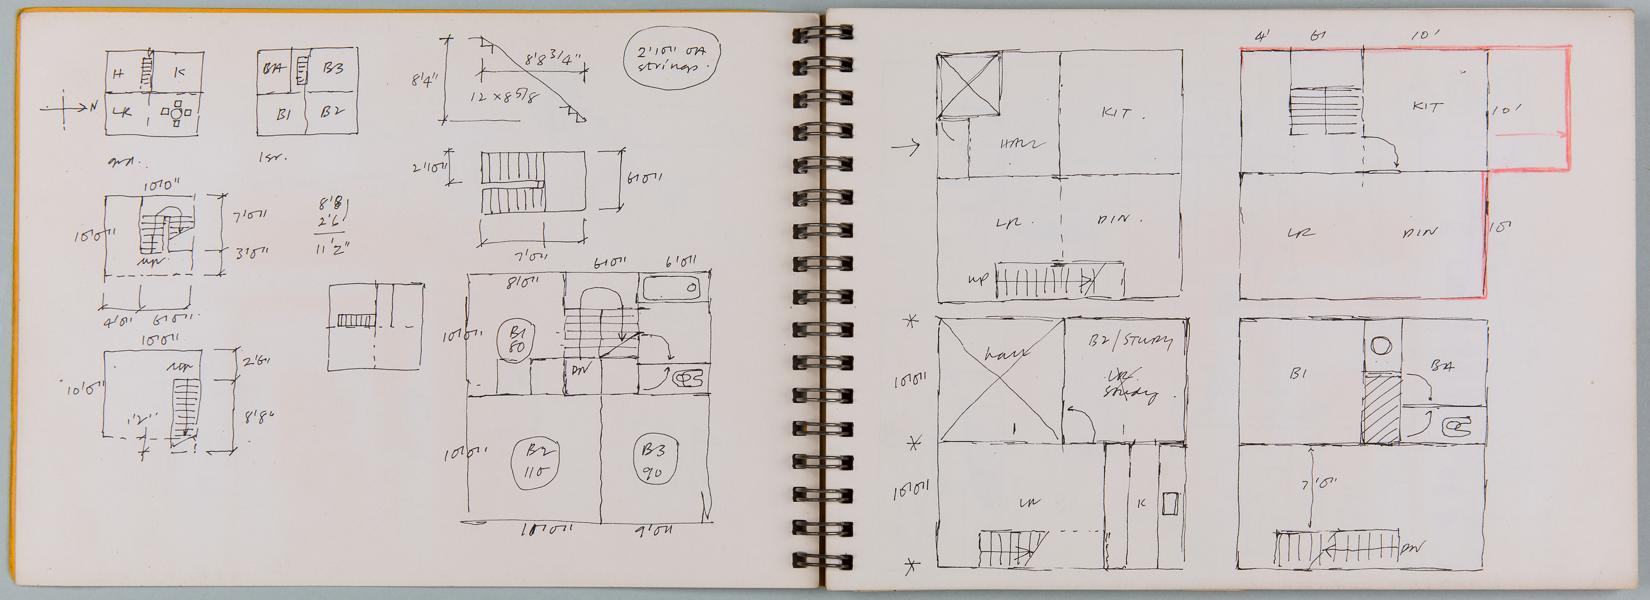 H
K
LR
N
grd.
BA
B3
B1
B2
1st.
8'4"
8'8 3/4"
12 x 8 5/8
2'10" OA
strings.
10'0"
10'0"
7'0"
3'0"
up
4'0"
6'0"
8'8"
2'6"
11'2"
2'10"
6'0"
7'0"
10'0"
10'0"
up
2'6"
8'8"
1'2"
8'0"
6'0"
6'0"
10'0"
B1
80
DN
10'0"
B2
110
B3
90
10'0"
9'0"
HALL
KIT.
LR.
DIN.
UP
4'
6'
10'
KIT
10'
LR
DIN
10'
10'0"
hall
B2/STUDY
LR
study
10'0"
LR
K
B1
BA
7'0"
DN